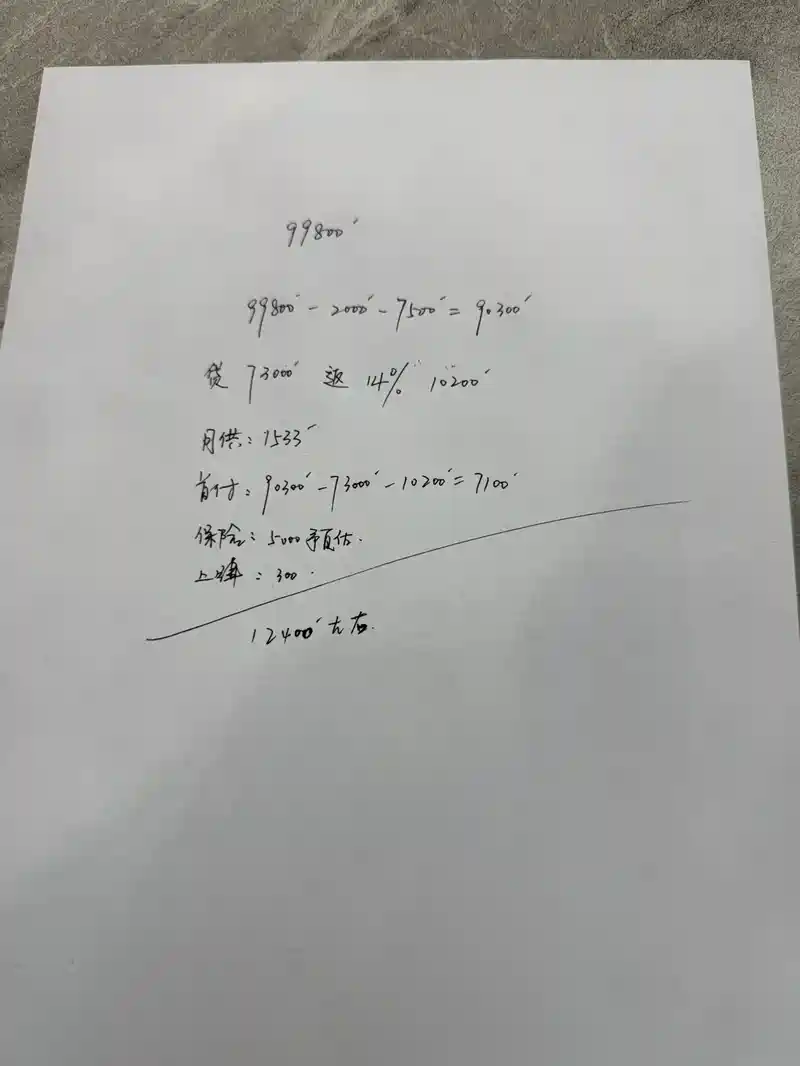 99800
99800-2000-7500=90300
贷 73000 返 14% 10200
月供:1533
首付:90300-73000-10200=7100
保险:5000预估.
上牌:300.
12400左右.